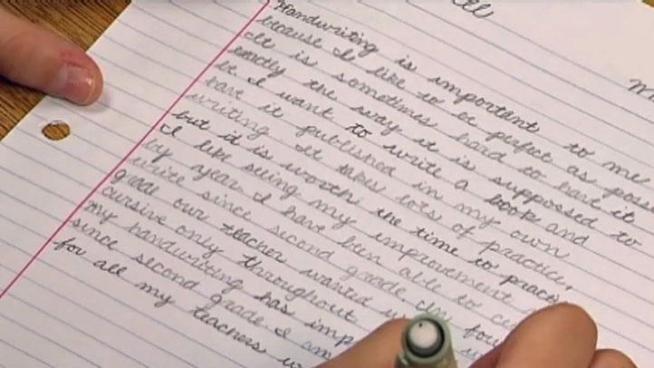 Handwriting is important to me
because I like to be perfect as
It is sometimes hard to have it
exactly the way it is supposed to
be. I want to write a book and
have it published in my own
writing. It takes lots of practice,
but it is worth the time to
I like seing my improvement
by year. I have been able to
write since second grade. In
grade our teacher wanted
cursive only throughout
my handwriting has
since second grade. I am
for all my teachers